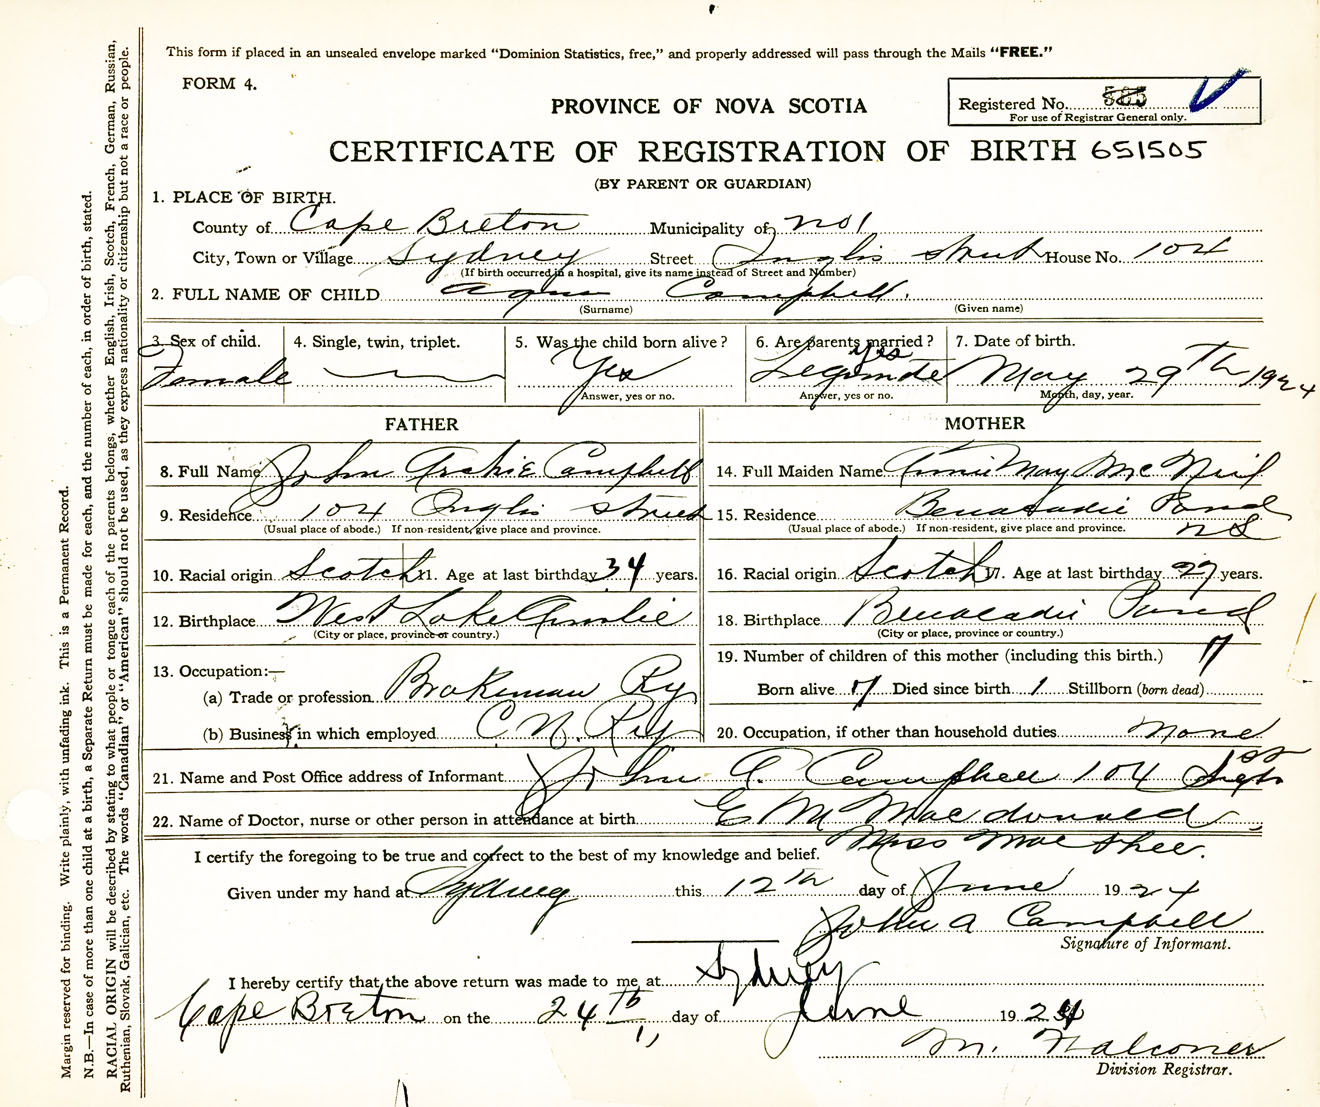 This form if placed in an unsealed envelope marked "Dominion Statistics, free," and properly addressed will pass through the Mails "FREE."
FORM 4.
PROVINCE OF NOVA SCOTIA
Registered No.
For use of Registrar General only.
CERTIFICATE OF REGISTRATION OF BIRTH 651505
(BY PARENT OR GUARDIAN)
1. PLACE OF BIRTH.
County of Cape Breton Municipality of no 1
City, Town or Village Sydney Street Inglis street House No. 104
(If birth occurred in a hospital, give its name instead of Street and Number)
2. FULL NAME OF CHILD Campbell.
(Surname) (Given name)
3. Sex of child. 4. Single, twin, triplet. 5. Was the child born alive? 6. Are parents married? 7. Date of birth.
Female Yes yes May 29th 1924
Answer, yes or no. Answer, yes or no. Month, day, year.
FATHER MOTHER
8. Full Name John Archie Campbell 14. Full Maiden Name May McNeil
9. Residence 104 Inglis street 15. Residence Benacadie Pond
(Usual place of abode.) If non-resident, give place and province. (Usual place of abode.) If non-resident, give place and province. NS
10. Racial origin Scotch 11. Age at last birthday 34 years. 16. Racial origin Scotch 17. Age at last birthday 27 years.
12. Birthplace West Lake Ainslie 18. Birthplace Benacadie Pond
(City or place, province or country.) (City or place, province or country.)
13. Occupation:— 19. Number of children of this mother (including this birth.) 7
(a) Trade or profession Brakeman Ry Born alive 7 Died since birth 1 Stillborn (born dead)
(b) Business in which employed C. N. Ry 20. Occupation, if other than household duties none
21. Name and Post Office address of Informant John A. Campbell 104 Inglis st
22. Name of Doctor, nurse or other person in attendance at birth E M Macdonald
I certify the foregoing to be true and correct to the best of my knowledge and belief. Miss
Given under my hand at Sydney this 12th day of June 1924
John A Campbell
Signature of Informant.
I hereby certify that the above return was made to me at Sydney
Cape Breton on the 24th day of June 1924
M. Falconer
Division Registrar.
Margin reserved for binding. Write plainly, with unfading ink. This is a Permanent Record.
N.B.—In case of more than one child at a birth, a Separate Return must be made for each, and the number of each, in order of birth, stated.
RACIAL ORIGIN will be described by stating to what people or tongue each of the parents belongs, whether English, Irish, Scotch, French, German, Russian,
Ruthenian, Slovak, Galician, etc. The words "Canadian" or "American" should not be used, as they express nationality or citizenship but not a race or people.